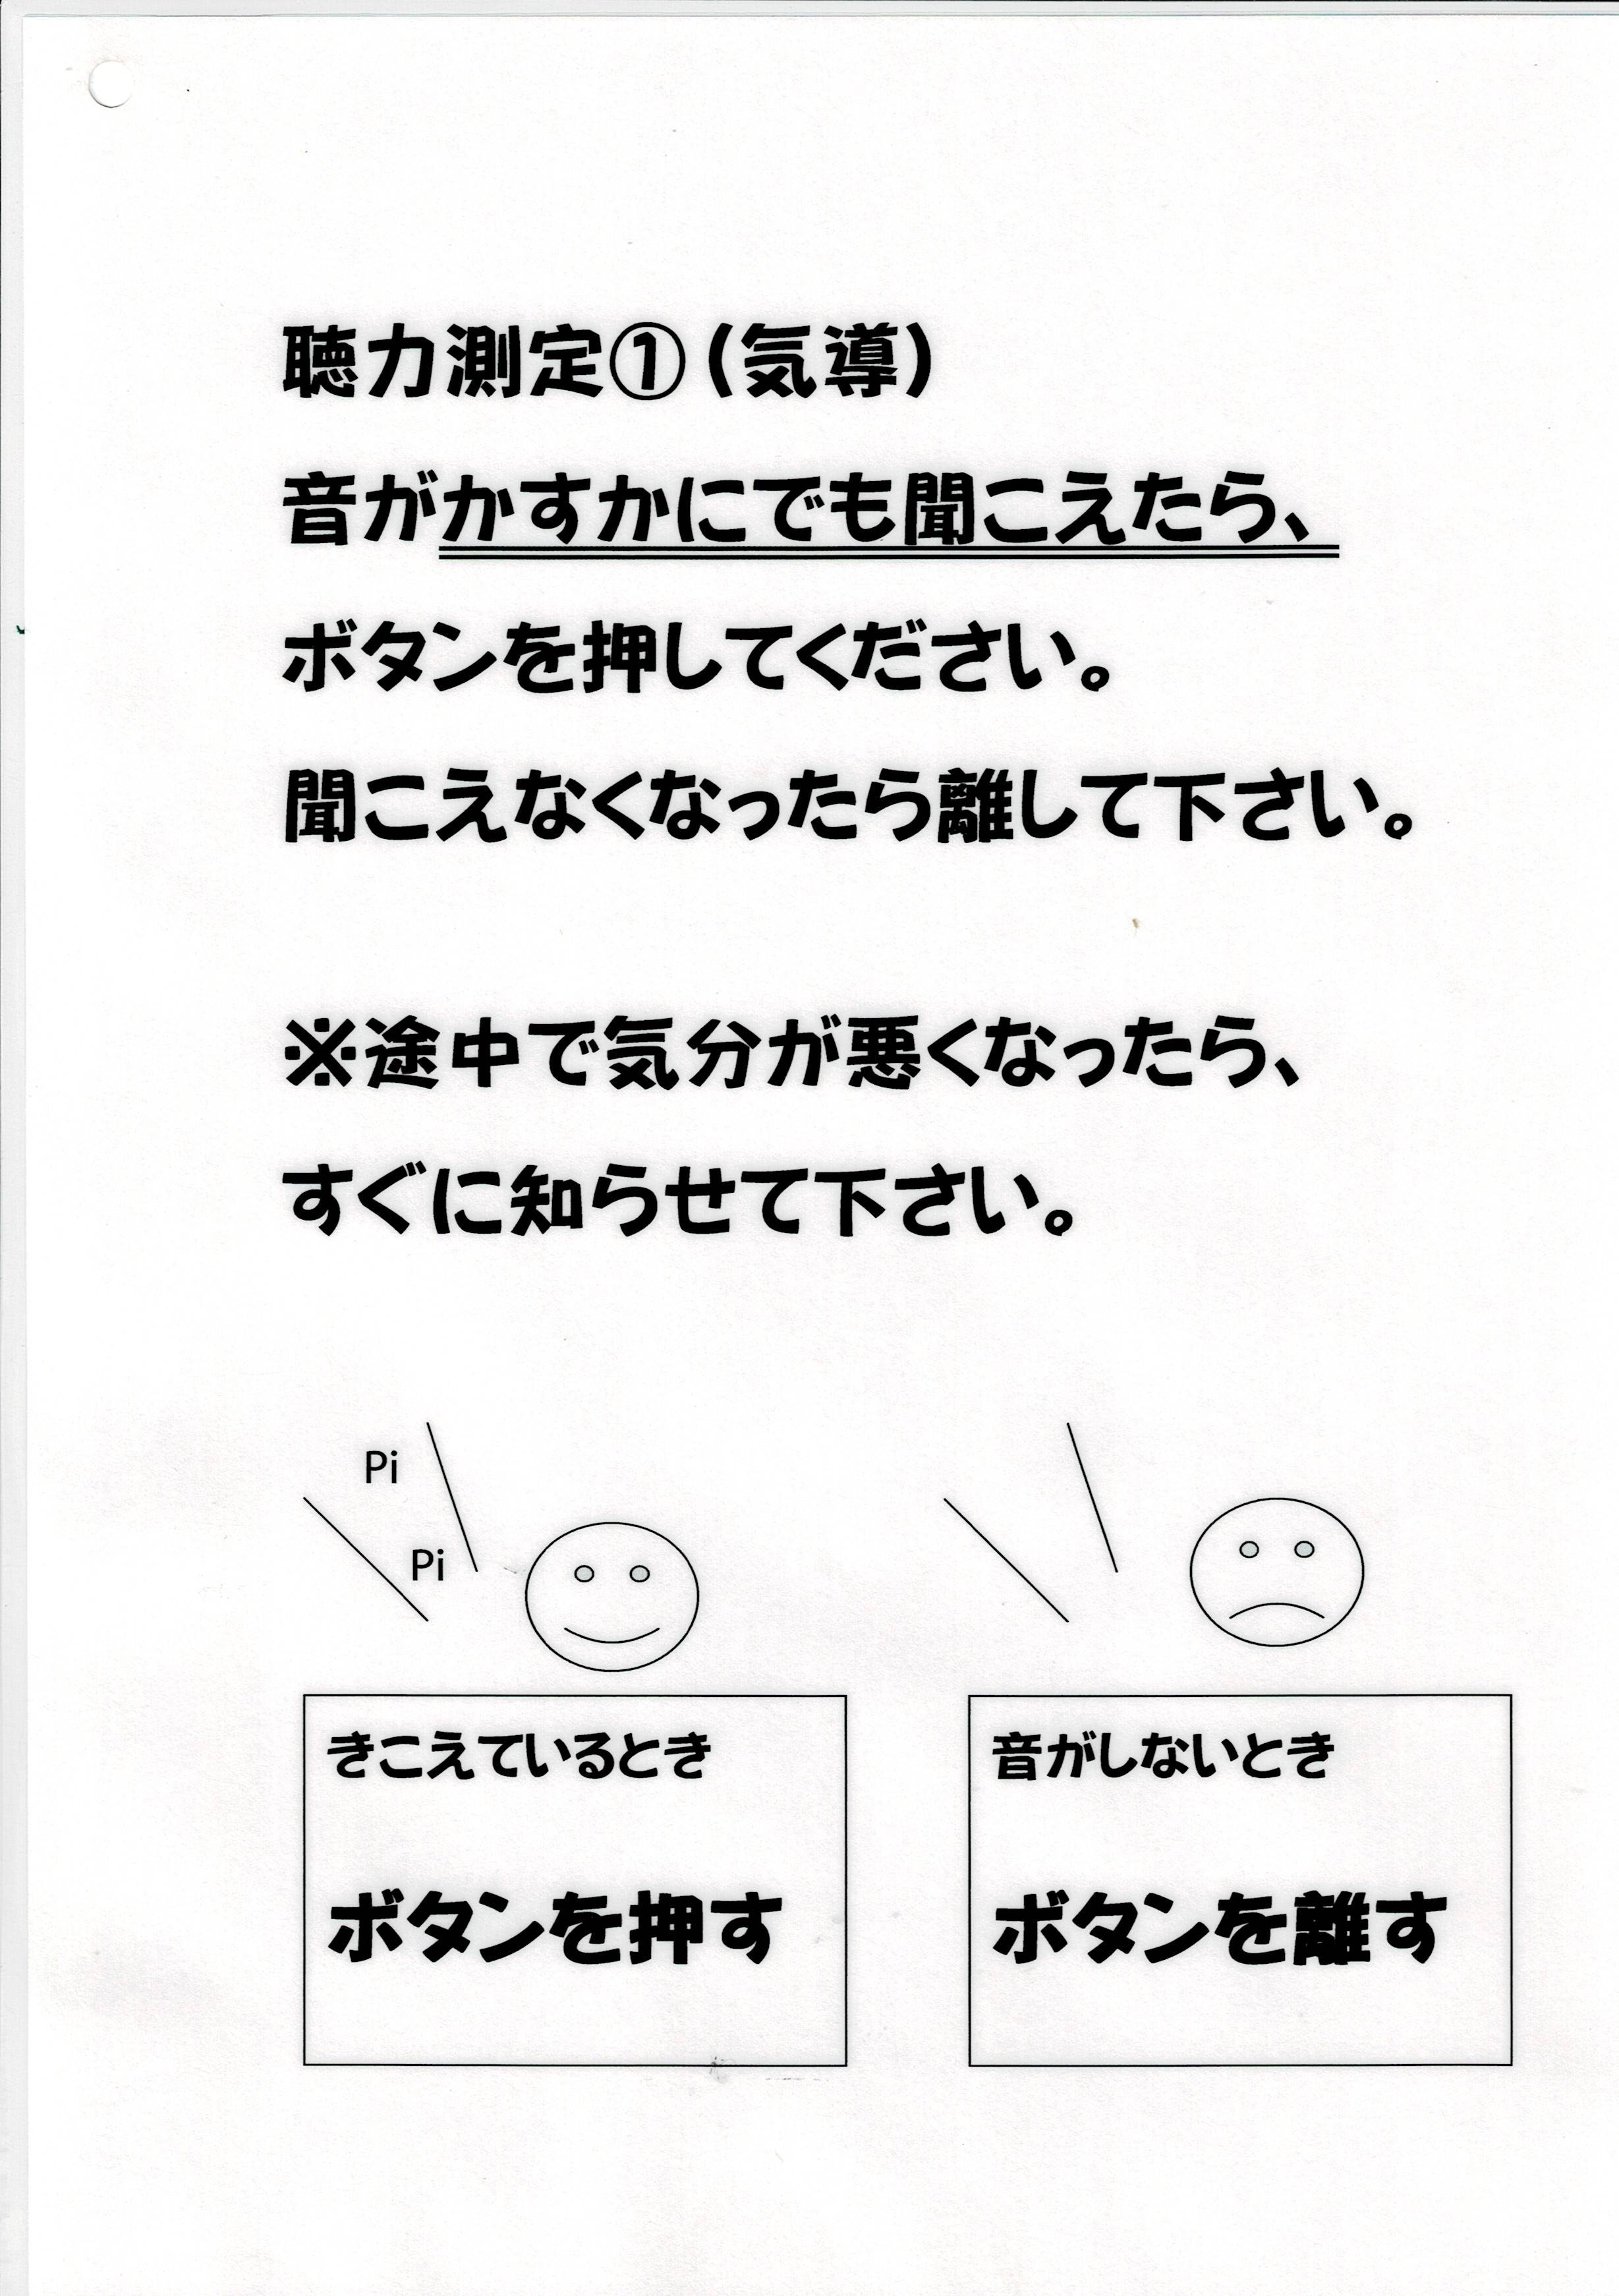 聴力測定①(気導)
音がかすかにでも聞こえたら、
ボタンを押してください。
聞こえなくなったら離して下さい。
※途中で気分が悪くなったら、
すぐに知らせて下さい。
Pi
Pi
きこえているとき
ボタンを押す
音がしないとき
ボタンを離す